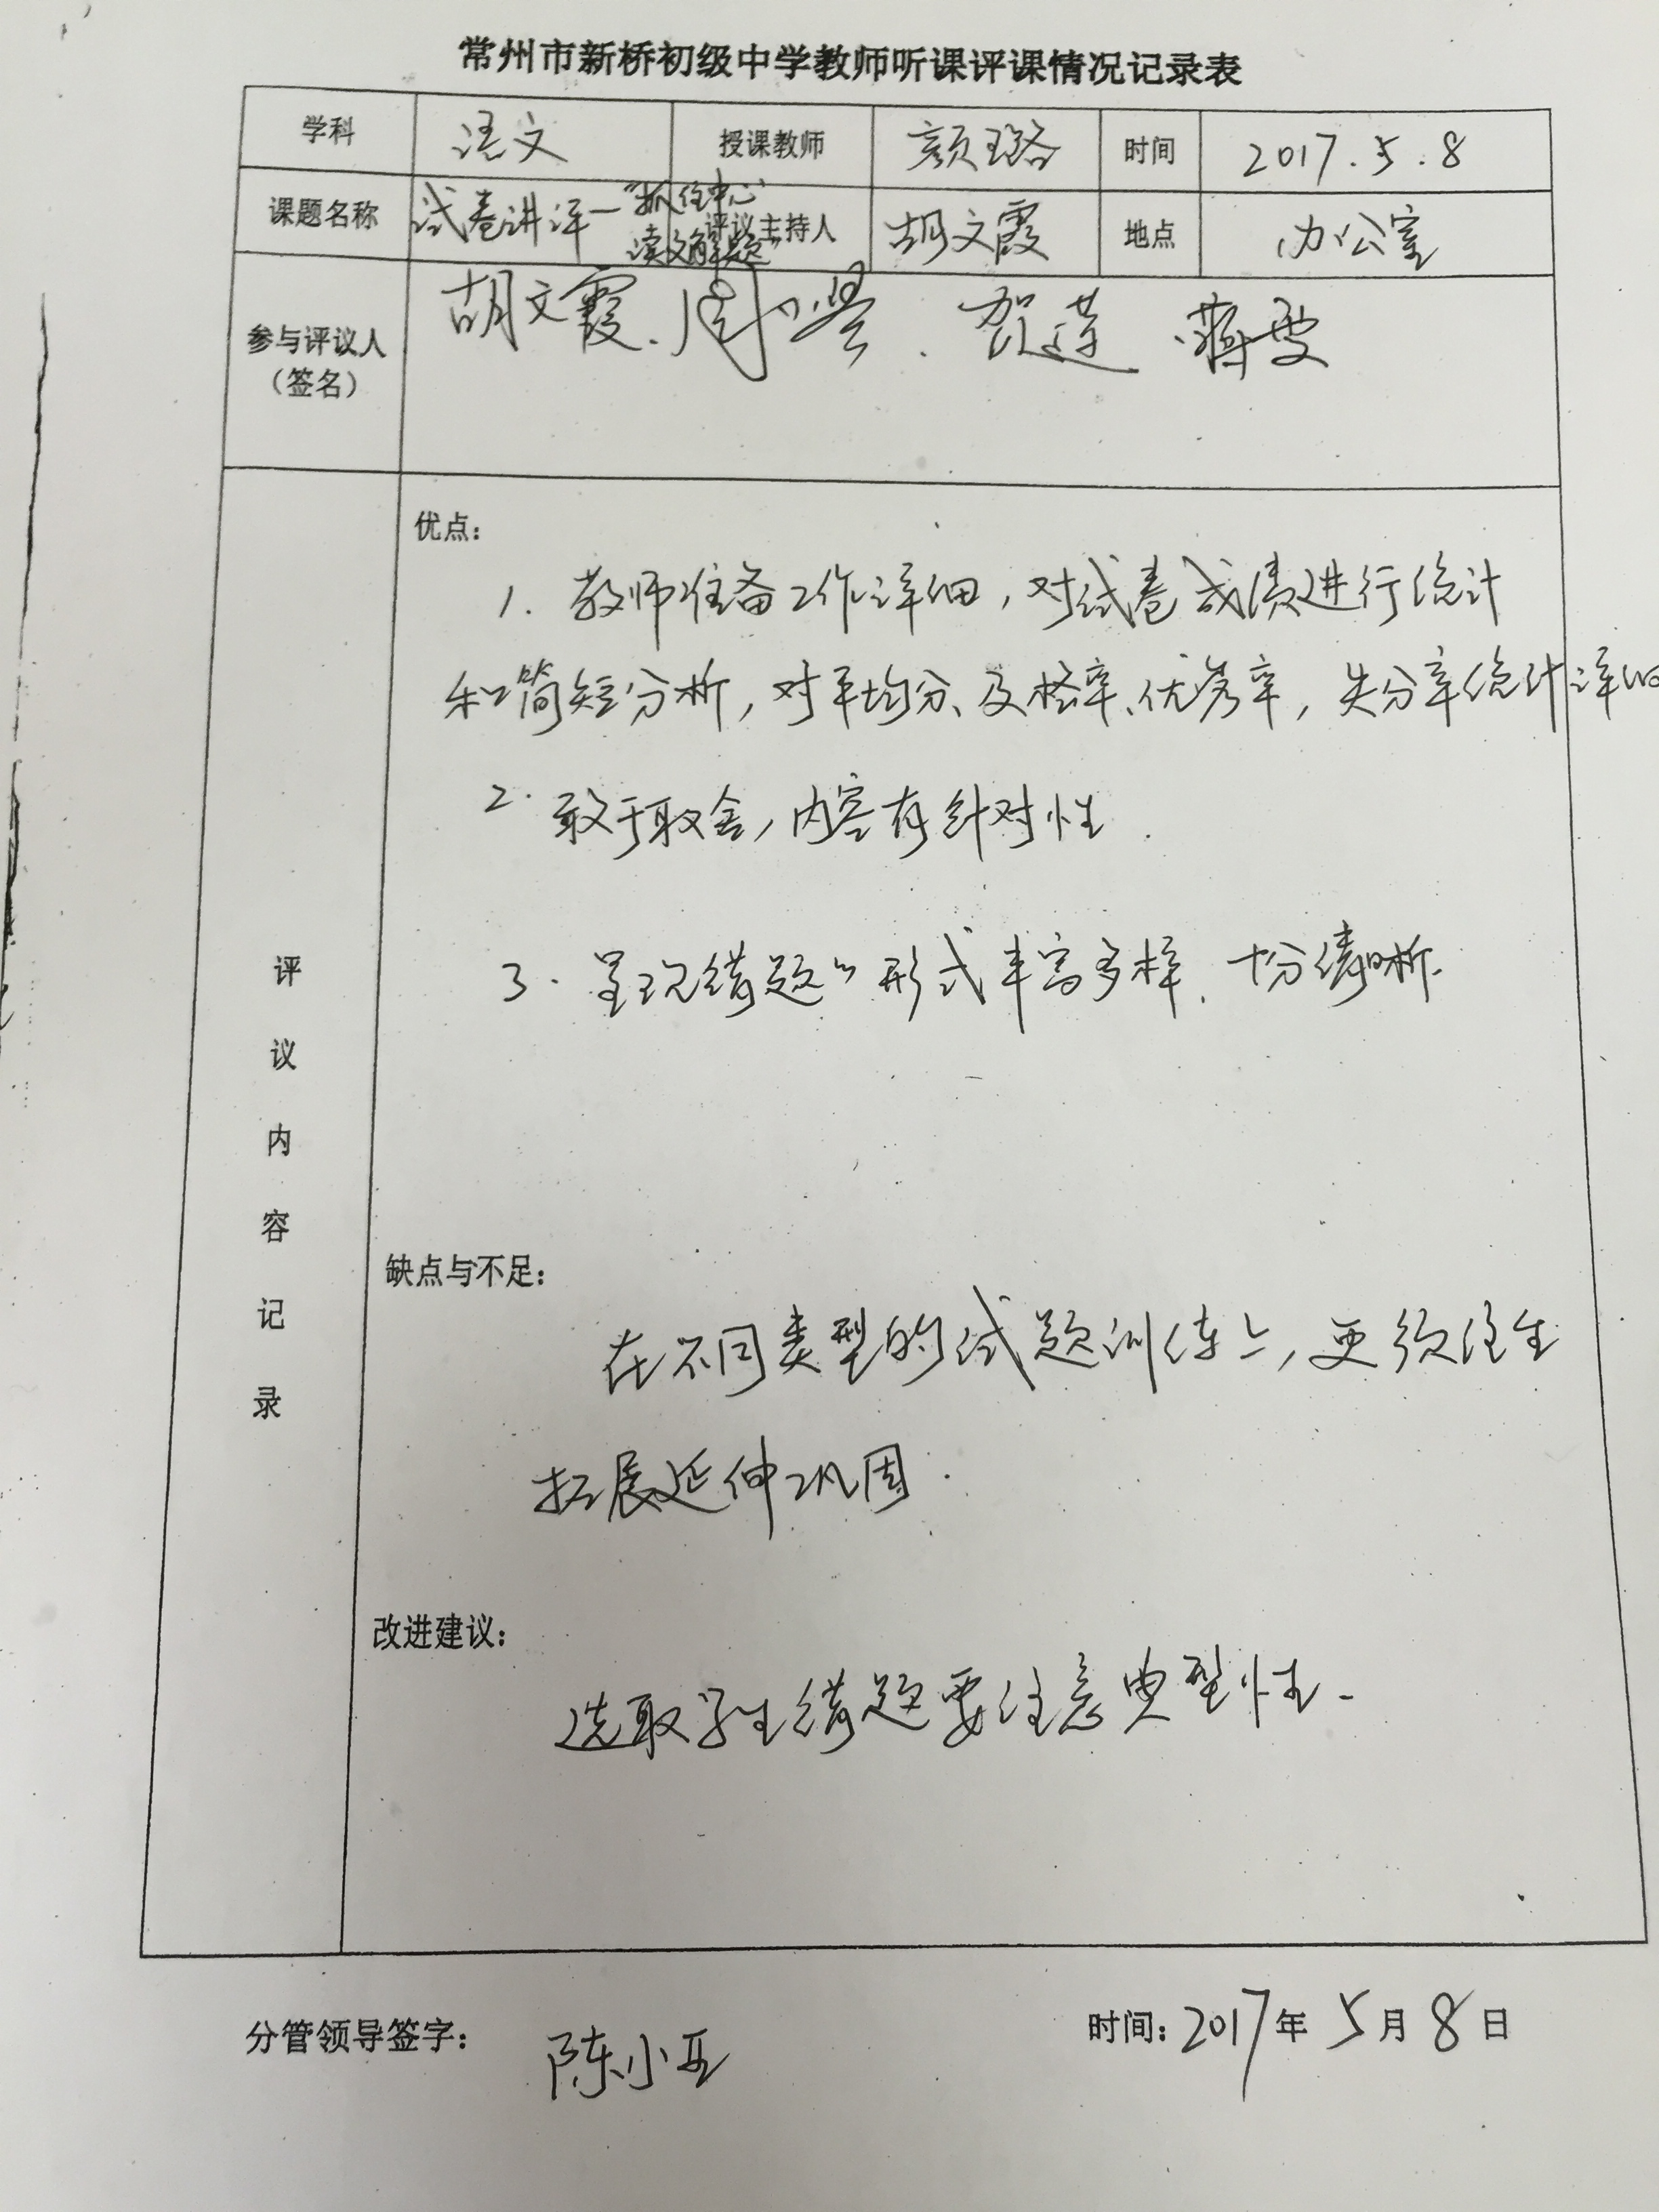 常州市新桥初级中学教师听课评课情况记录表
学科 语文 授课教师 颜璐 时间 2017.5.8
课题名称 试卷讲评—"抓住中心 读文解题" 评议主持人 胡文霞 地点 办公室
参与评议人 胡文霞、周 、贺莲、蒋雯
（签名）
评议内容记录
优点：
1. 教师准备工作详细，对试卷成绩进行统计
和简短分析，对平均分、及格率、优秀率，失分率统计详细
2. 敢于取舍，内容有针对性.
3. 呈现错题 形式丰富多样，十分清晰.
缺点与不足：
在不同类型的试题训练上，更须注生
拓展延伸巩固.
改进建议：
选取学生错题要注意典型性.
分管领导签字： 陈小亚 时间：2017年5月8日